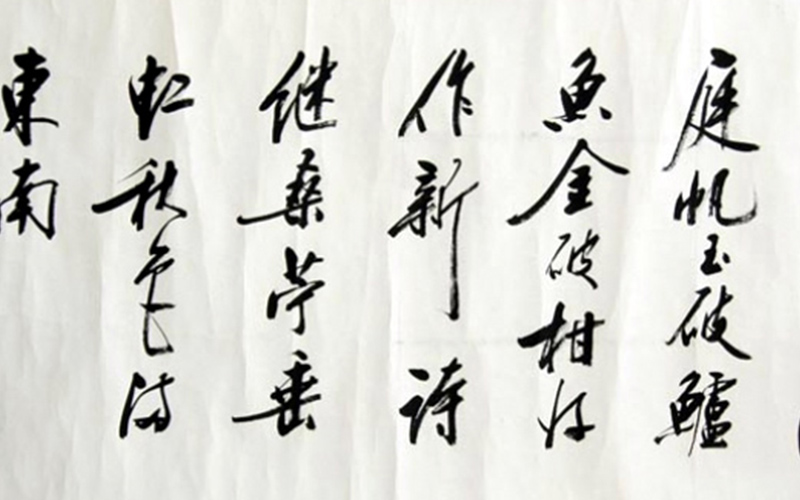 庭帆玉破鱸
魚金破柑好
作新詩
继桑苧垂
虹秋色满
東南